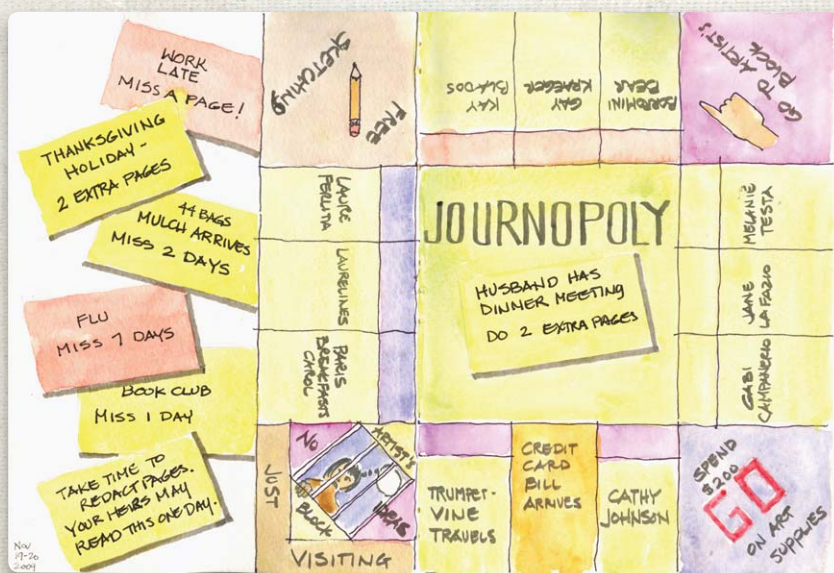 WORK
LATE
MISS A PAGE!
THANKSGIVING
HOLIDAY -
2 EXTRA PAGES
44 BAGS
MULCH ARRIVES
MISS 2 DAYS
FLU
MISS 7 DAYS
BOOK CLUB
MISS 1 DAY
TAKE TIME TO
REDACT PAGES.
YOUR HEIRS MAY
READ THIS ONE DAY.
NOV
19-20
2009
FREE
SKETCHING
KAY
GAY
KRAEGER
BORROMINI
BEAR
GO TO ARTIST'S
BLOCK
LAURE
FERLITA
LAURELINES
PARIS
BREAKFASTS
CAROL
JOURNOPOLY
HUSBAND HAS
DINNER MEETING
DO 2 EXTRA PAGES
MELANIE
TESTA
JANE
LAFAZIO
GABI
CAMPANERIO
JUST
VISITING
NO
IDEAS
ARTIST'S
BLOCK
TRUMPET-
VINE
TRAVELS
CREDIT
CARD
BILL
ARRIVES
CATHY
JOHNSON
SPEND
$200
GO
ON ART
SUPPLIES